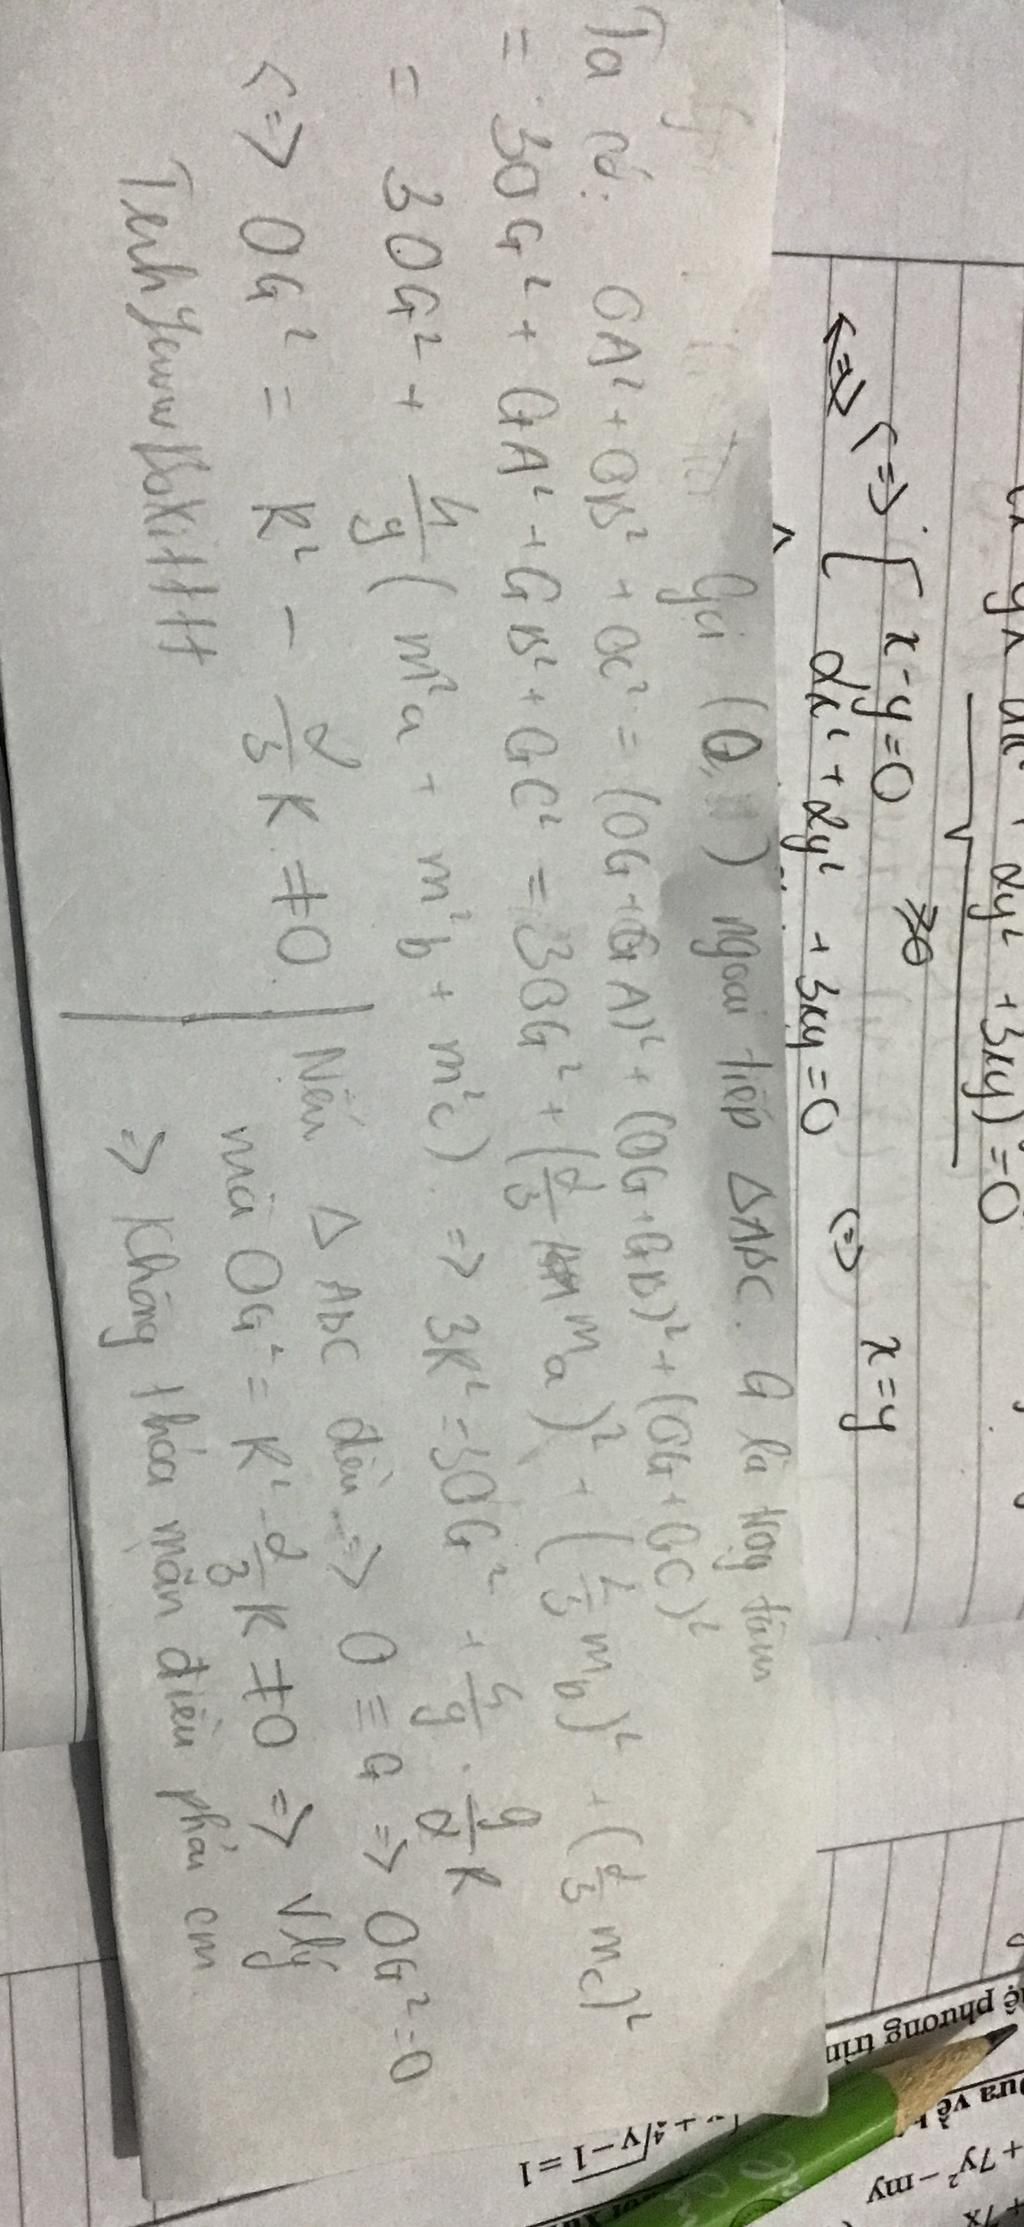 + 2y² + 3xy) = 0
≥0
<=> <=> [ x - y = 0 <=> x = y
2x² + 2y² + 3xy = 0
Gọi (O, R) ngoại tiếp ΔABC. G là trọng tâm
Ta có: OA² + OB² + OC² = (OG + GA)² + (OG + GB)² + (OG + GC)²
= 3OG² + GA² + GB² + GC² = 3OG² + (2/3 m_a)² + (2/3 m_b)² + (2/3 m_c)²
= 3OG² + 4/9 (m²a + m²b + m²c) => 3R² = 3OG² + 4/9 . 9/2 R
<=> OG² = R² - 2/3 R ≠ 0
Nếu Δ ABC đều => O ≡ G => OG² = 0
mà OG² = R² - 2/3 R ≠ 0 => Vlý
=> Không thỏa mãn điều phải cm
ệ phương trìn
+ 7y² - my
+ 7x
+ ⁴√y-1 = 1